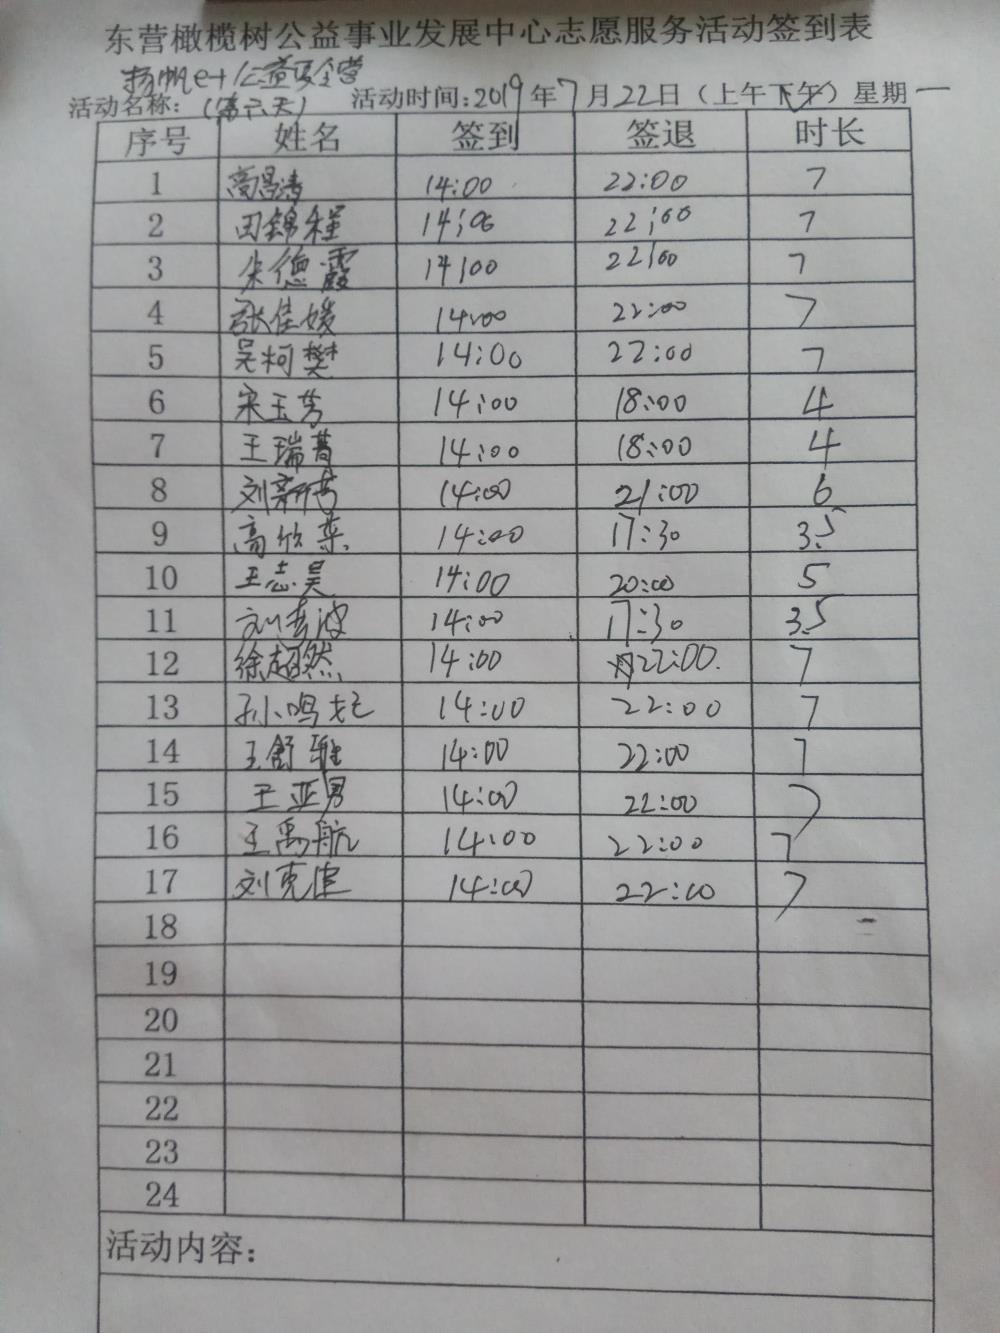 东营橄榄树公益事业发展中心志愿服务活动签到表
扬帆e+公益夏令营
活动名称：（第六天） 活动时间:2019年7月22日（上午下午）星期一
序号 姓名 签到 签退 时长
1 高昌涛 14:00 22:00 7
2 田锦程 14:00 22:00 7
3 朱德霞 14:00 22:00 7
4 张佳媛 14:00 22:00 7
5 吴柯樊 14:00 22:00 7
6 宋玉芳 14:00 18:00 4
7 王瑞菁 14:00 18:00 4
8 刘新 14:00 21:00 6
9 高欣荣 14:00 17:30 3.5
10 王志昊 14:00 20:00 5
11 刘 波 14:00 17:30 3.5
12 徐超然 14:00 22:00. 7
13 孙鸣 14:00 22:00 7
14 王舒雅 14:00 22:00 7
15 王亚男 14:00 22:00 7
16 王禹航 14:00 22:00 7
17 刘克健 14:00 22:00 7
18
19
20
21
22
23
24
活动内容：